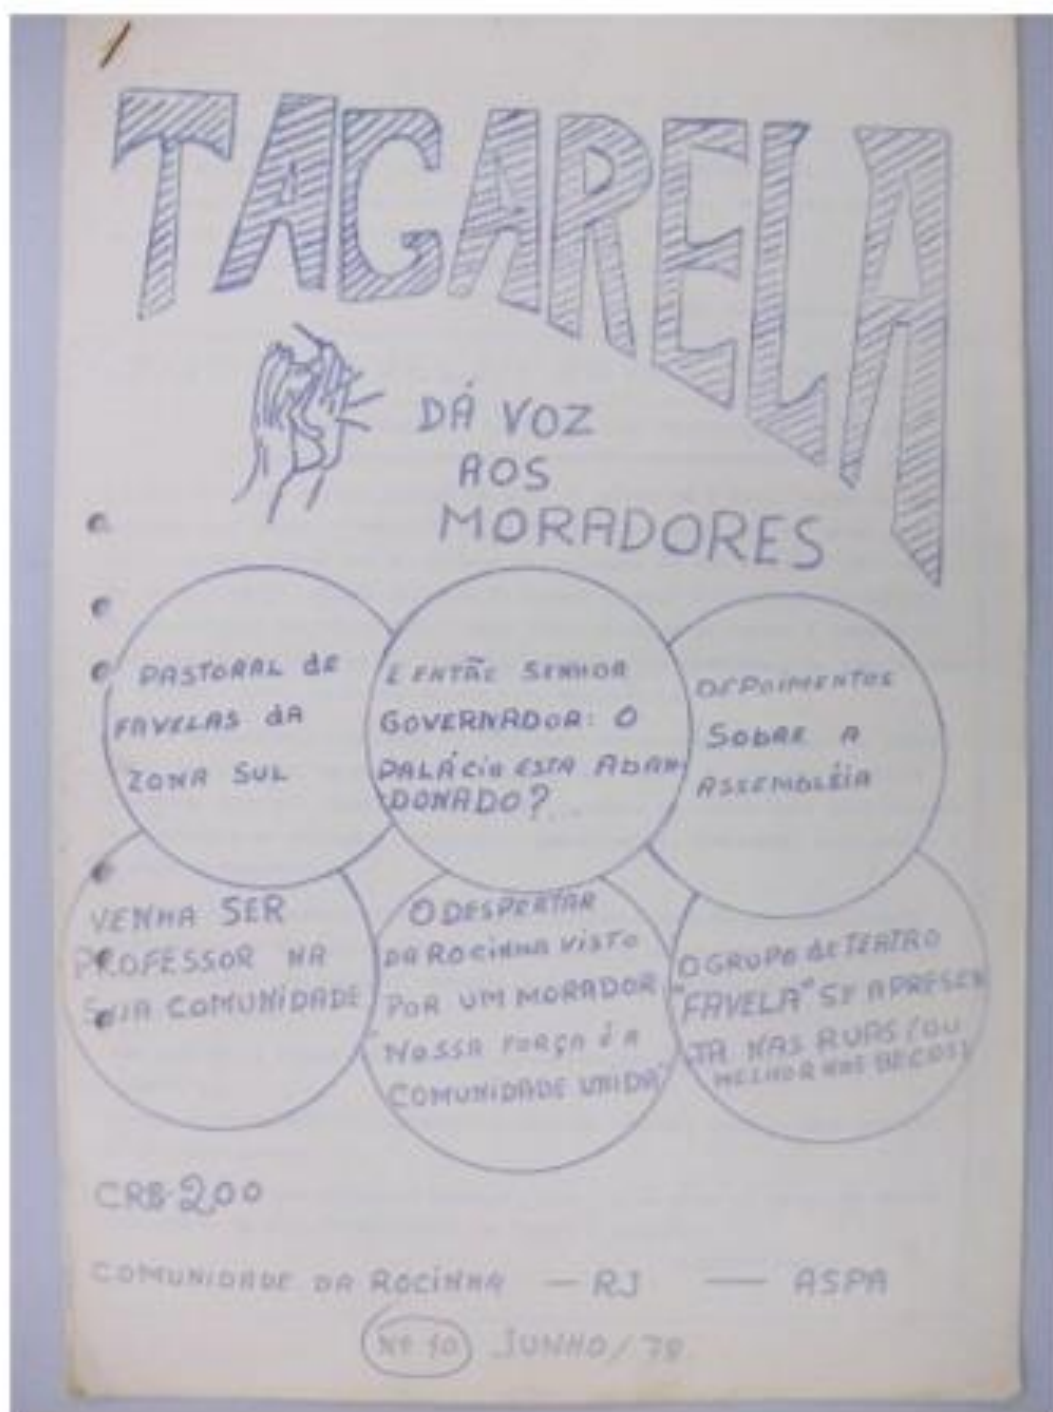 TAGARELA
DÁ VOZ
AOS
MORADORES
PASTORAL de
FAVELAS dA
ZONA SUL
E ENTÃO SENHOR
GOVERNADOR: O
PALÁCIO ESTA ABAN-
DONADO?...
DEPOIMENTOS
SOBRE A
ASSEMBLÉIA
VENHA SER
PROFESSOR NA
SUA COMUNIDADE
O DESPERTAR
DA ROCINHA VISTO
POR UM MORADOR
"NOSSA FORÇA É A
COMUNIDADE UNIDA"
O GRUPO de TEATRO
"FAVELA" SE APRESEN
TA NAS RUAS (OU
MELHOR NOS BECOS)
CR$ 2,00
COMUNIDADE DA ROCINHA — RJ — ASPA
Nº 10 JUNHO/78